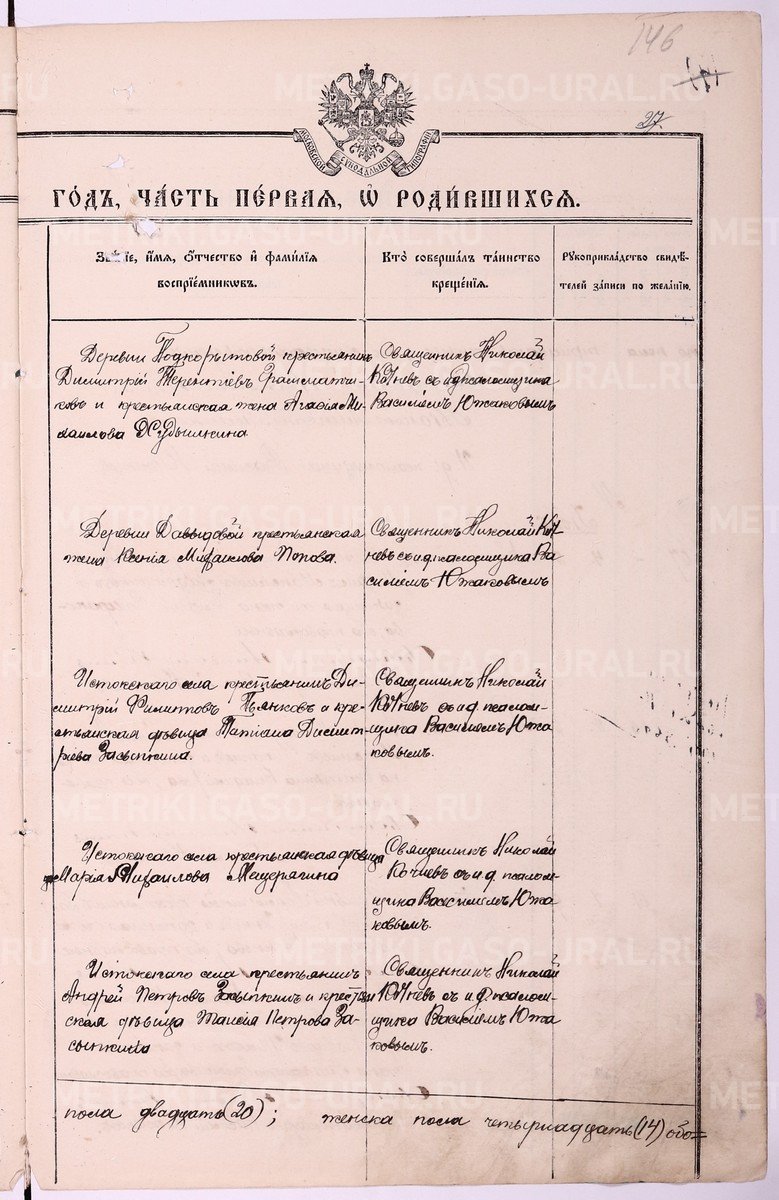 146
27.
МОСКОВСКОЙ СѴНОДАЛЬНОЙ ТИПОГРАФІИ
ГО́ДЪ, ЧА́СТЬ ПЕ́РВАЯ, Ѽ РОДИ́ВШИХСЯ.
Зва́ніе, и́мя, ѻ҆́тчество и҆ фами́лія
воспріе́мниковъ.
Кто̀ соверша́лъ та́инство
креще́нія.
Рукоприкла́дство свидѣ́-
телей за́писи по жела́нію.
Деревни Подкорытовой крестьянинъ
Димитрій Терентіевъ Грамматчи-
ковъ и крестьянская жена Агафія Ми-
хаилова
Священникъ Николай
Кочневъ съ и.д. псаломщика
Василіемъ Южаковымъ
Деревни Давыдовой крестьянская
жена Ксенія Михаилова Попова.
Священникъ Николай Коч-
невъ съ и.д. псаломщика Ва-
силіемъ Южаковымъ
Истокскаго села крестьянинъ Ди-
митрій Филипповъ Пьянковъ и кре-
стьянская дѣвица Татіана Димит-
ріева Засыпкина.
Священникъ Николай
Кочневъ съ и.д. псалом-
щика Василіемъ Южа-
ковымъ.
Истокскаго села крестьянская дѣвица
Марія Михаилова Мещерягина
Священникъ Николай
Кочневъ съ и.д. псалом-
щика Василіемъ Южа-
ковымъ.
Истокскаго села крестьянинъ
Андрей Петровъ Засыпкинъ и крестьян-
ская дѣвица Таисія Петрова За-
сыпкина
Священникъ Николай
Кочневъ съ и.д. псалом-
щика Василіемъ Южа-
ковымъ.
пола двадцать (20); женска пола четырнадцать (14) обо=
METRIKI.GASO-URAL.RU